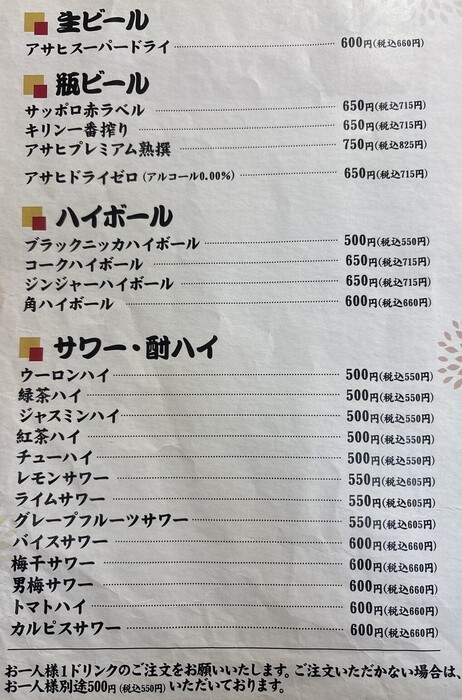 生ビール
アサヒスーパードライ 600円(税込660円)
瓶ビール
サッポロ赤ラベル 650円(税込715円)
キリン一番搾り 650円(税込715円)
アサヒプレミアム熟撰 750円(税込825円)
アサヒドライゼロ(アルコール0.00%) 650円(税込715円)
ハイボール
ブラックニッカハイボール 500円(税込550円)
コークハイボール 650円(税込715円)
ジンジャーハイボール 650円(税込715円)
角ハイボール 600円(税込660円)
サワー・酎ハイ
ウーロンハイ 500円(税込550円)
緑茶ハイ 500円(税込550円)
ジャスミンハイ 500円(税込550円)
紅茶ハイ 500円(税込550円)
チューハイ 500円(税込550円)
レモンサワー 550円(税込605円)
ライムサワー 550円(税込605円)
グレープフルーツサワー 550円(税込605円)
バイスサワー 600円(税込660円)
梅干サワー 600円(税込660円)
男梅サワー 600円(税込660円)
トマトハイ 600円(税込660円)
カルピスサワー 600円(税込660円)
お一人様1ドリンクのご注文をお願いいたします。ご注文いただかない場合は、
お一人様別途500円(税込550円)いただいております。